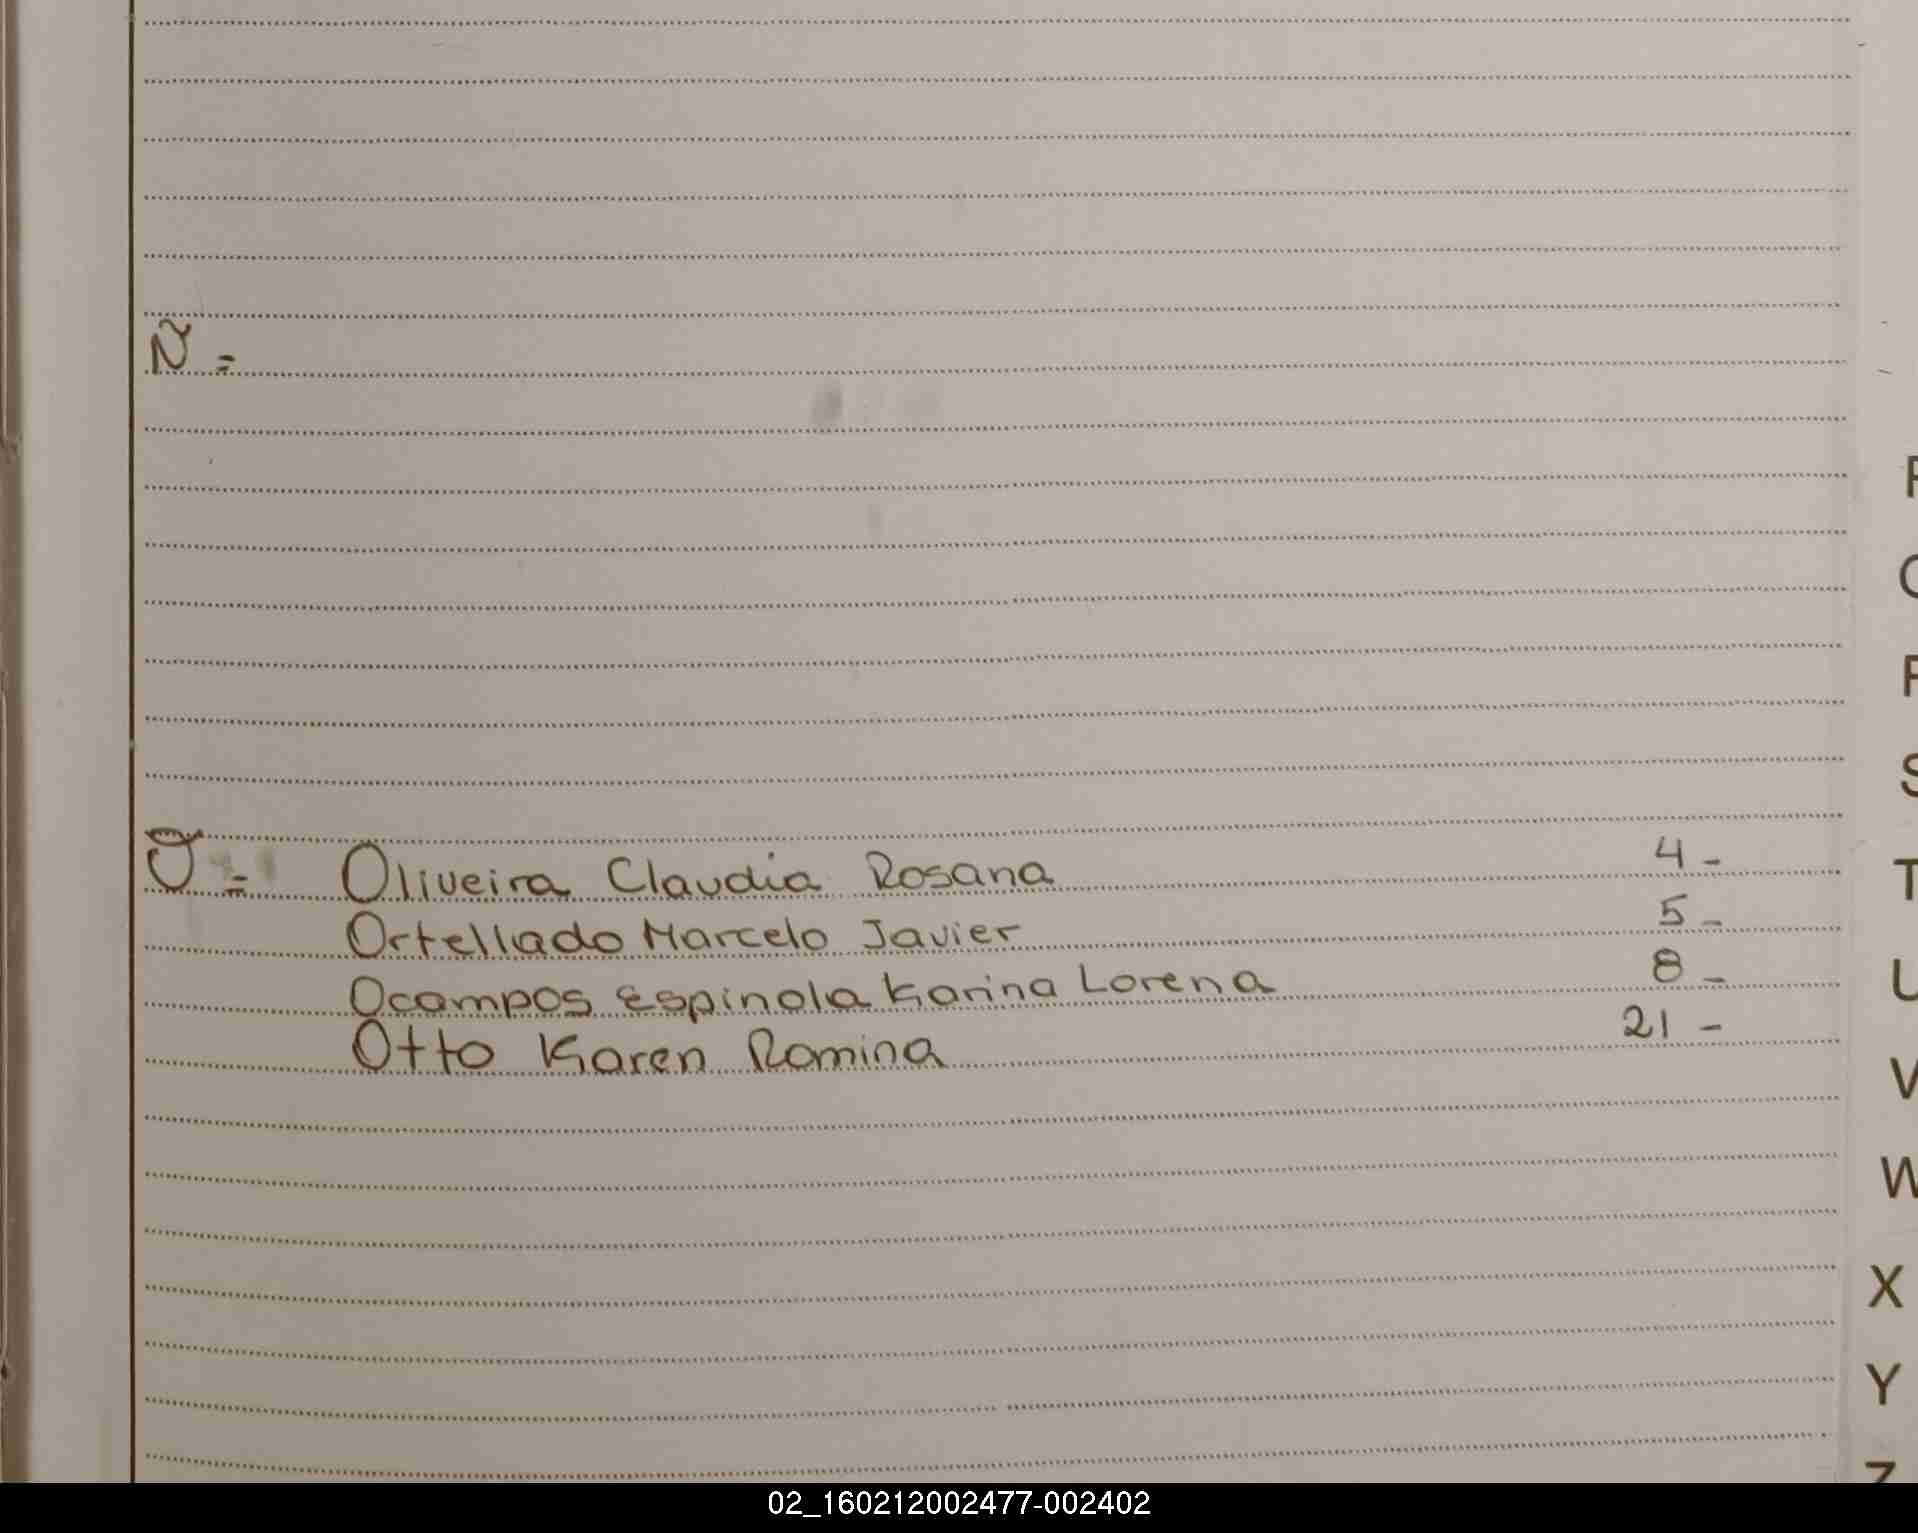 Ñ =
O = Oliveira Claudia Rosana 4 -
Ortellado Marcelo Javier 5 -
Ocampos Espinola Karina Lorena 8 -
Otto Karen Romina 21 -
S
T
U
V
W
X
Y
Z
02_160212002477-002402